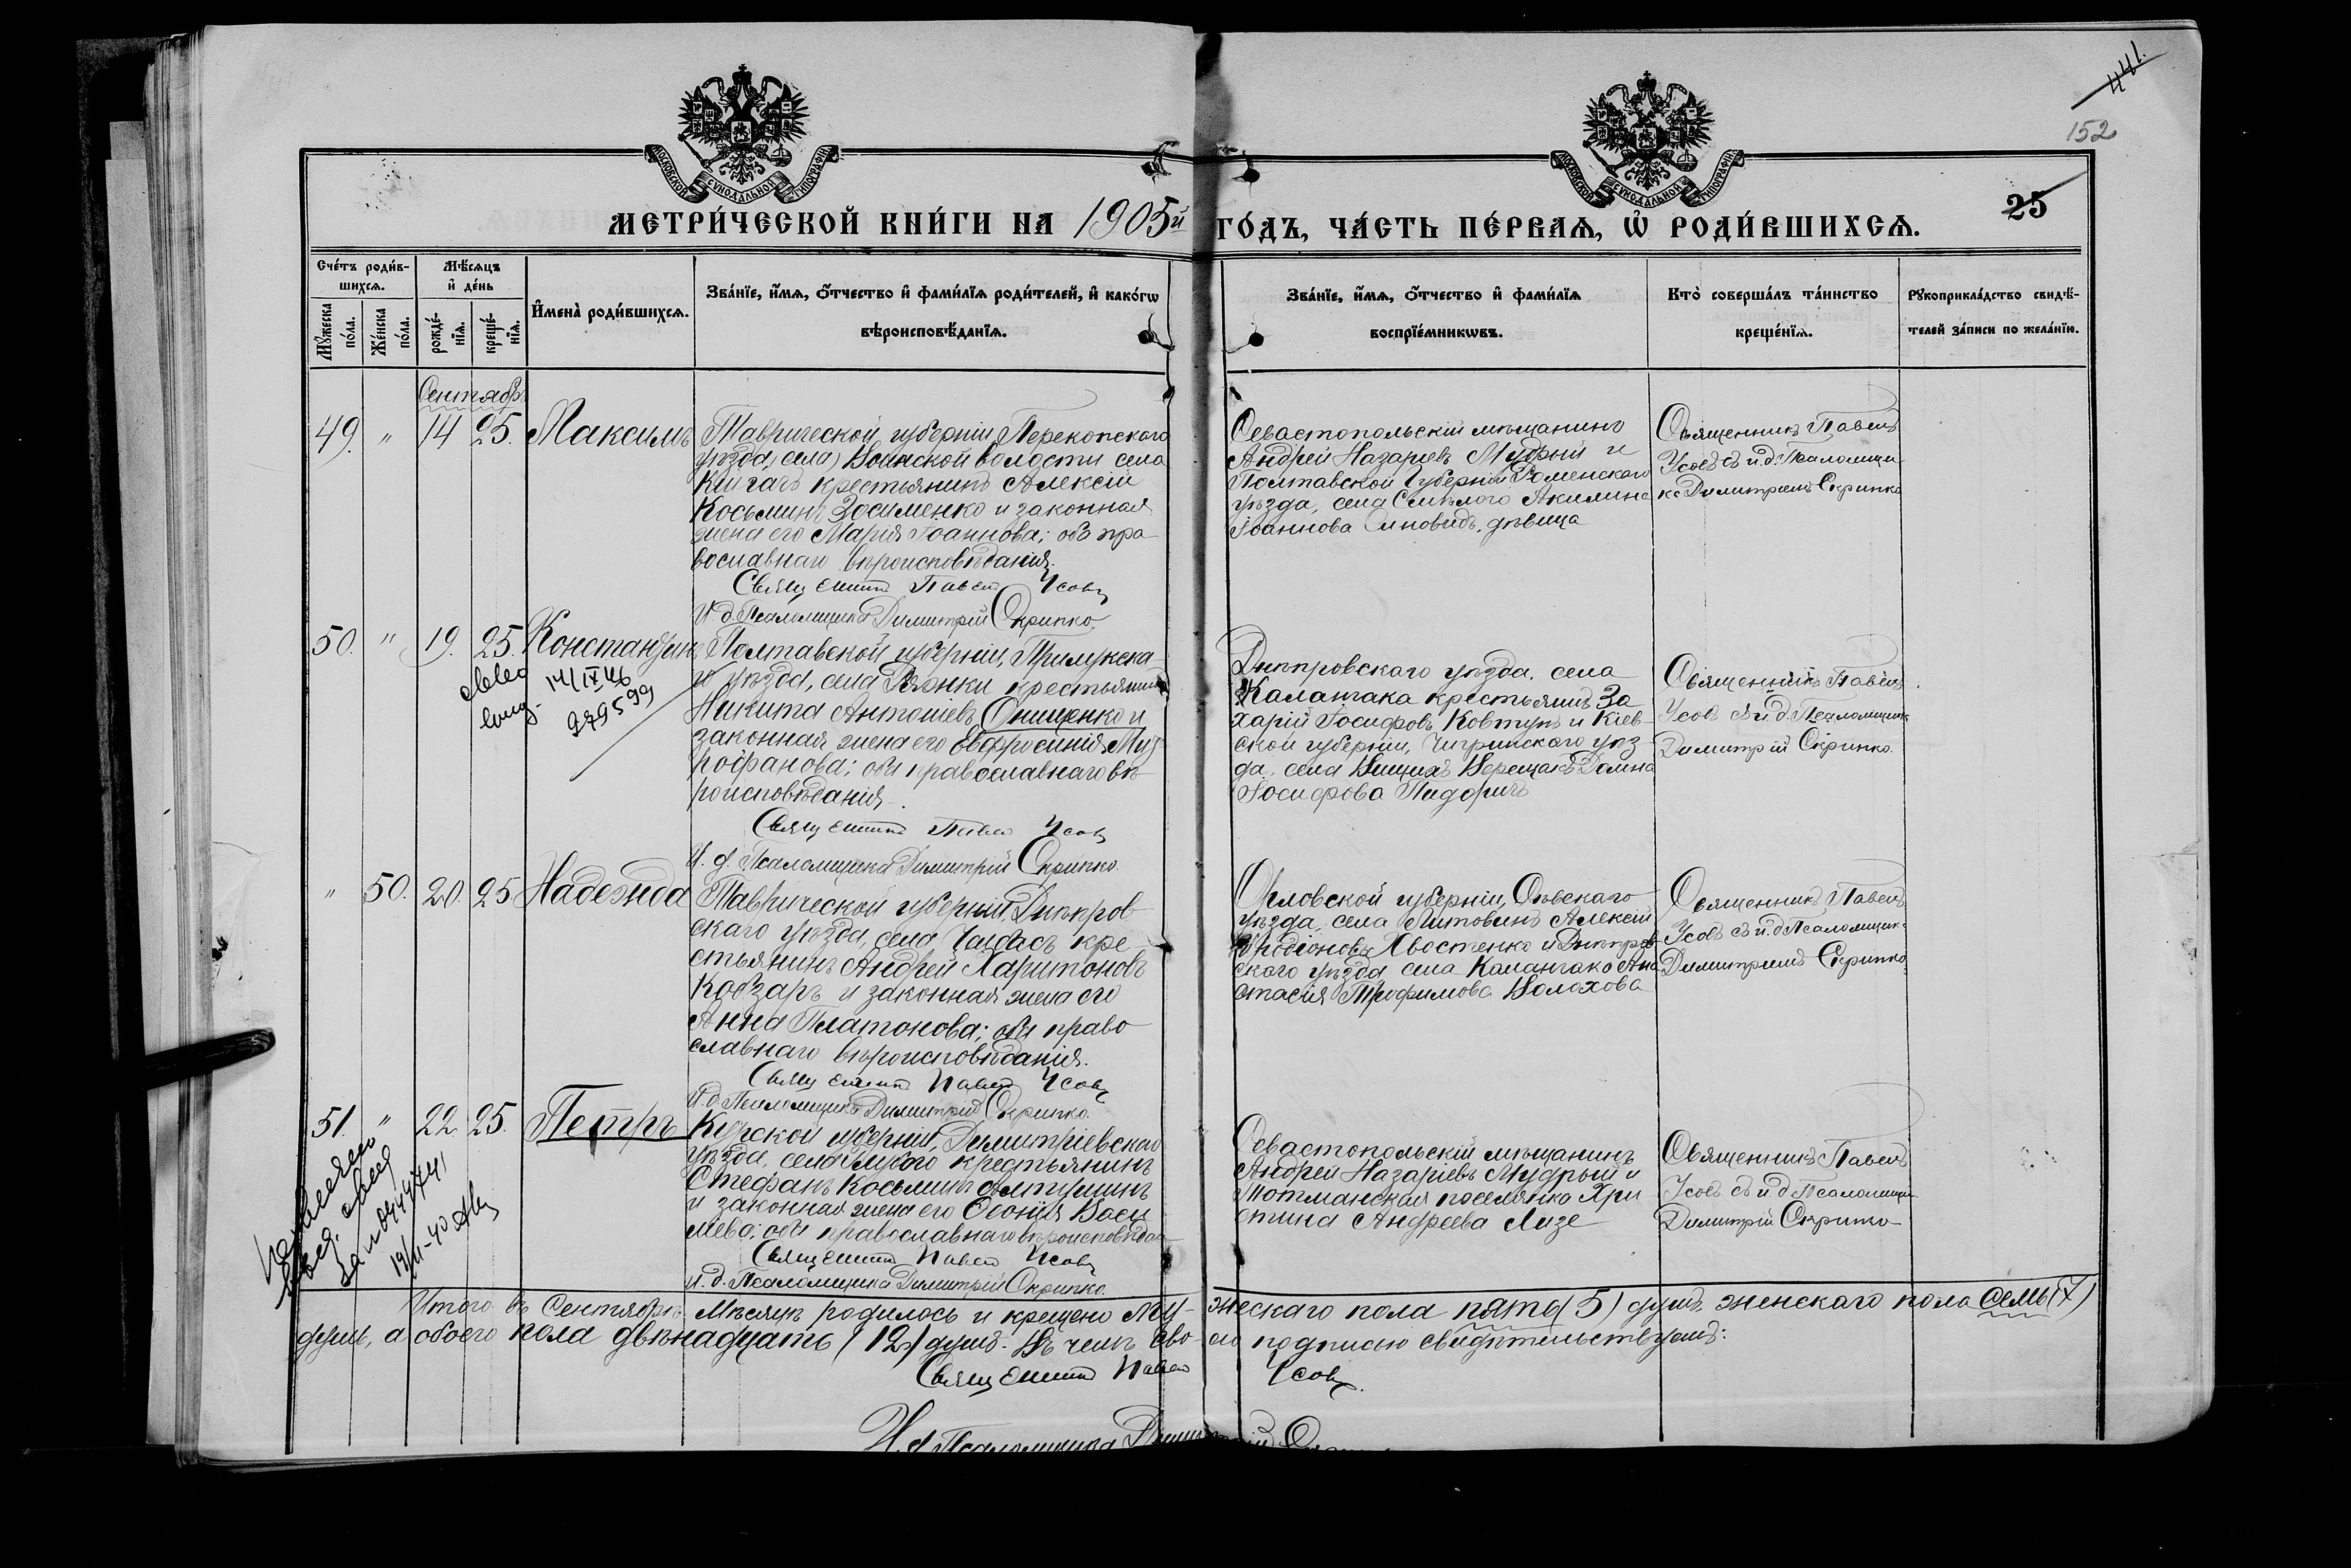 441.
152
МОСКОВСКОЙ СѴНОДАЛЬНОЙ ТИПОГРАФІИ
МОСКОВСКОЙ СѴНОДАЛЬНОЙ ТИПОГРАФІИ
25
МЕТРИ́ЧЕСКОЙ КНИ́ГИ НА 1905й ГО́ДЪ, ЧА́СТЬ ПЕ́РВАѦ, Ѽ РОДИ́ВШИХСѦ.
Сче́тъ роди́в-
шихсѧ.
Мꙋ́жеска по́ла.
Же́нска по́ла.
Мѣ́сѧцъ
и҆ де́нь
рожде́-
нїѧ.
креще́-
нїѧ.
И҆мена̀ роди́вшихсѧ.
Зва́нїе, и҆́мѧ, ѻ҆́тчество и҆ фами́лїѧ роди́телей, и҆ како́гѡ
вѣроисповѣ́данїѧ.
Зва́нїе, и҆́мѧ, ѻ҆́тчество и҆ фами́лїѧ
воспрїе́мникѡвъ.
Кто̀ соверша́лъ та́инство
креще́нїѧ.
Рꙋкоприкла́дство свидѣ́-
телей за́писи по жела́нїю.
Сентябрь
49. " 14 25. Максимъ
Таврической губерніи Перекопскаго
уѣзда, села) Воинской волости села
крестьянинъ Алексій
Косьминъ Зосименко и законная
жена его Марія Іоаннова; оба пра
вославнаго вѣроисповѣданія.
Священникъ Павелъ Усовъ
И. д. Псаломщика Димитрій Скрипко
Севастопольскій мѣщанинъ
Андрей Назаріевъ Мудрый и
Полтавской Губерніи Роменскаго
уѣзда, села Смѣлого Акилина
Іоаннова дѣвица
Священникъ Павелъ
Усовъ съ и. д. Псаломщи-
ка Димитріемъ Скрипко
50. " 19. 25. Константинъ
14/IX 46
979599
Полтавской губерніи, Прилукска
го уѣзда, села крестьянинъ
Никита Антоніевъ Онищенко и
законная жена его Евфросинія Мит
рофанова; оба православнаго вѣ
роисповѣданія.
Священникъ Павелъ Усовъ
И. д. Псаломщика Димитрій Скрипко.
Днѣпровскаго уѣзда, села
Каланчака крестьянинъ За
харій Іосифовъ Ковтунъ и Кіев-
ской губерніи, Чигринскаго уѣз-
да, села Верещакъ Домна
Іосифова
Священникъ Павелъ
Усовъ съ и. д. Псаломщика
Димитрій Скрипко.
" 50. 20. 25 Надежда
Таврической губерніи, Днѣпров
скаго уѣзда, села Чалбасъ кре
стьянинъ Андрей Харитоновъ
Кобзарь и законная жена его
Анна Платонова; оба право
славнаго вѣроисповѣданія.
Священникъ Павелъ Усовъ
И. д. Псаломщика Димитрій Скрипко.
Орловской губерніи, Сѣвскаго
уѣзда, села Литовинъ Алексій
Иродіоновъ Хвостенко и Днѣпров
скаго уѣзда села Каланчако Ана
стасія Трофимова Волохова
Священникъ Павелъ
Усовъ съ и. д. Псаломщик.
Димитріемъ Скрипко.
51. " 22. 25. Петръ
Курской губерніи, Димитріевскаго
уѣзда, села крестьянинъ
Стефанъ Косьминъ
и законная жена его Ѳеонія Васи
лева; оба православнаго вѣроисповѣдан
Священникъ Павелъ Усовъ
И. д. Псаломщика Димитрій Скрипко.
Севастопольскій мѣщанинъ
Андрей Назаріевъ Мудрый и
поселянка Хри
стина Андреева Лизе
Священникъ Павелъ
Усовъ съ и. д. Псаломщи
Димитрій Скрипко
Итого въ Сентябрѣ Мѣсяцѣ родилось и крещено Му-жескаго пола пять (5) душъ, женскаго пола семь (7)
душъ, а обоего пола двѣнадцать (12) душъ. Въ чемъ сво-ею подписью свидѣтельствуемъ:
Священникъ Павелъ Усовъ.
И. д. Псаломщика Димитрій